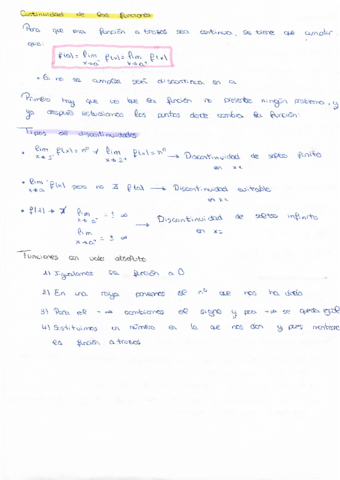 Continuidad de las funciones
Para que una función a trozos sea continua, se tiene que cumplir
que:
f(a) = lim x→a⁻ f(x) = lim x→a⁺ f(x)
• Si no se cumple será discontinua en a
Primero hay que ver que la función no presente ningún problema, y
ya después estudiamos los puntos donde cambia la función.
Tipos de discontinuidades
• lim f(x) = nº ≠ lim f(x) = nº → Discontinuidad de salto finito
en x=
• lim f(x) pero no ∃ f(a) → Discontinuidad evitable
en x=
• f(a) → ∄ lim x→a⁻ = ± ∞ → Discontinuidad de salto infinito
lim x→a⁺ = ± ∞ en x=
Funciones en valor absoluto
1) Igualamos la función a 0
2) En una raya ponemos el nº que nos ha dado
3) Para el -∞ cambiamos el signo y para +∞ se queda igual
4) Sustituimos un número en la que nos dan y pues
la función a trozos